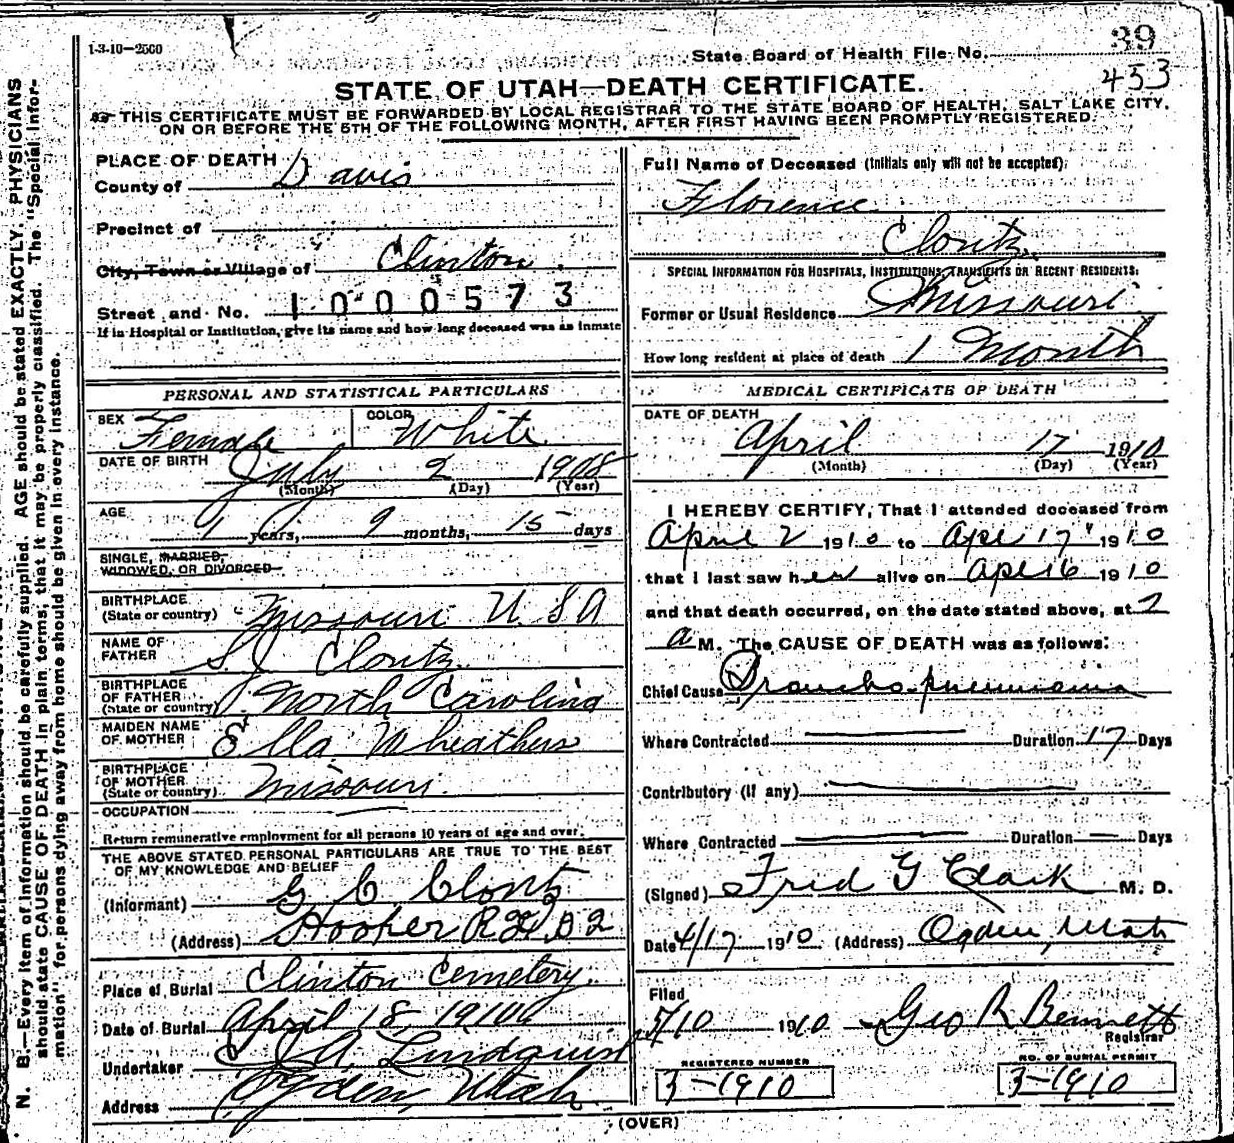 1-3-10-2500
39
State Board of Health File No.
453
STATE OF UTAH—DEATH CERTIFICATE.
THIS CERTIFICATE MUST BE FORWARDED BY LOCAL REGISTRAR TO THE STATE BOARD OF HEALTH, SALT LAKE CITY,
ON OR BEFORE THE 5TH OF THE FOLLOWING MONTH, AFTER FIRST HAVING BEEN PROMPTLY REGISTERED.
PLACE OF DEATH
County of Davis
Precinct of
City, Town or Village of Clinton
Street and No. 1000573
If in Hospital or Institution, give its name and how long deceased was an inmate
Full Name of Deceased (Initials only will not be accepted):
Florence
Clontz
SPECIAL INFORMATION FOR HOSPITALS, INSTITUTIONS, TRANSIENTS OR RECENT RESIDENTS:
Former or Usual Residence Missouri
How long resident at place of death 1 Month
PERSONAL AND STATISTICAL PARTICULARS
SEX Female COLOR White
DATE OF BIRTH July 2 1908
(Month) (Day) (Year)
AGE 1 years, 9 months, 15 days
SINGLE, MARRIED,
WIDOWED, OR DIVORCED
BIRTHPLACE
(State or country) Missouri U.S.A
NAME OF
FATHER S J Clontz
BIRTHPLACE
OF FATHER
(State or country) North Carolina
MAIDEN NAME
OF MOTHER Ella Wheathers
BIRTHPLACE
OF MOTHER
(State or country) Missouri.
OCCUPATION
Return remunerative employment for all persons 10 years of age and over.
THE ABOVE STATED PERSONAL PARTICULARS ARE TRUE TO THE BEST
OF MY KNOWLEDGE AND BELIEF
(Informant) G C Clontz
(Address) Hooper R D 2
Place of Burial Clinton Cemetery.
Date of Burial April 18, 1910
Undertaker Lindquist
Address Ogden, Utah.
MEDICAL CERTIFICATE OF DEATH
DATE OF DEATH
April 17 1910
(Month) (Day) (Year)
I HEREBY CERTIFY, That I attended deceased from
April 2 1910 to Apl 17 1910
that I last saw her alive on Apl 16 1910
and that death occurred, on the date stated above, at 2
a M. The CAUSE OF DEATH was as follows:
Chief Cause Broncho-pneumonia
Where Contracted Duration 17 Days
Contributory (if any)
Where Contracted Duration — Days
(Signed) Fred G Clark M. D.
Date 4/17 1910 (Address) Ogden, Utah
Filed
5/10 1910 Geo R Bennett
Registrar
REGISTERED NUMBER
3-1910
NO. OF BURIAL PERMIT
3-1910
(OVER)
N. B.—Every item of information should be carefully supplied. AGE should be stated EXACTLY. PHYSICIANS
should state CAUSE OF DEATH in plain terms, that it may be properly classified. The "Special Infor-
mation" for persons dying away from home should be given in every instance.